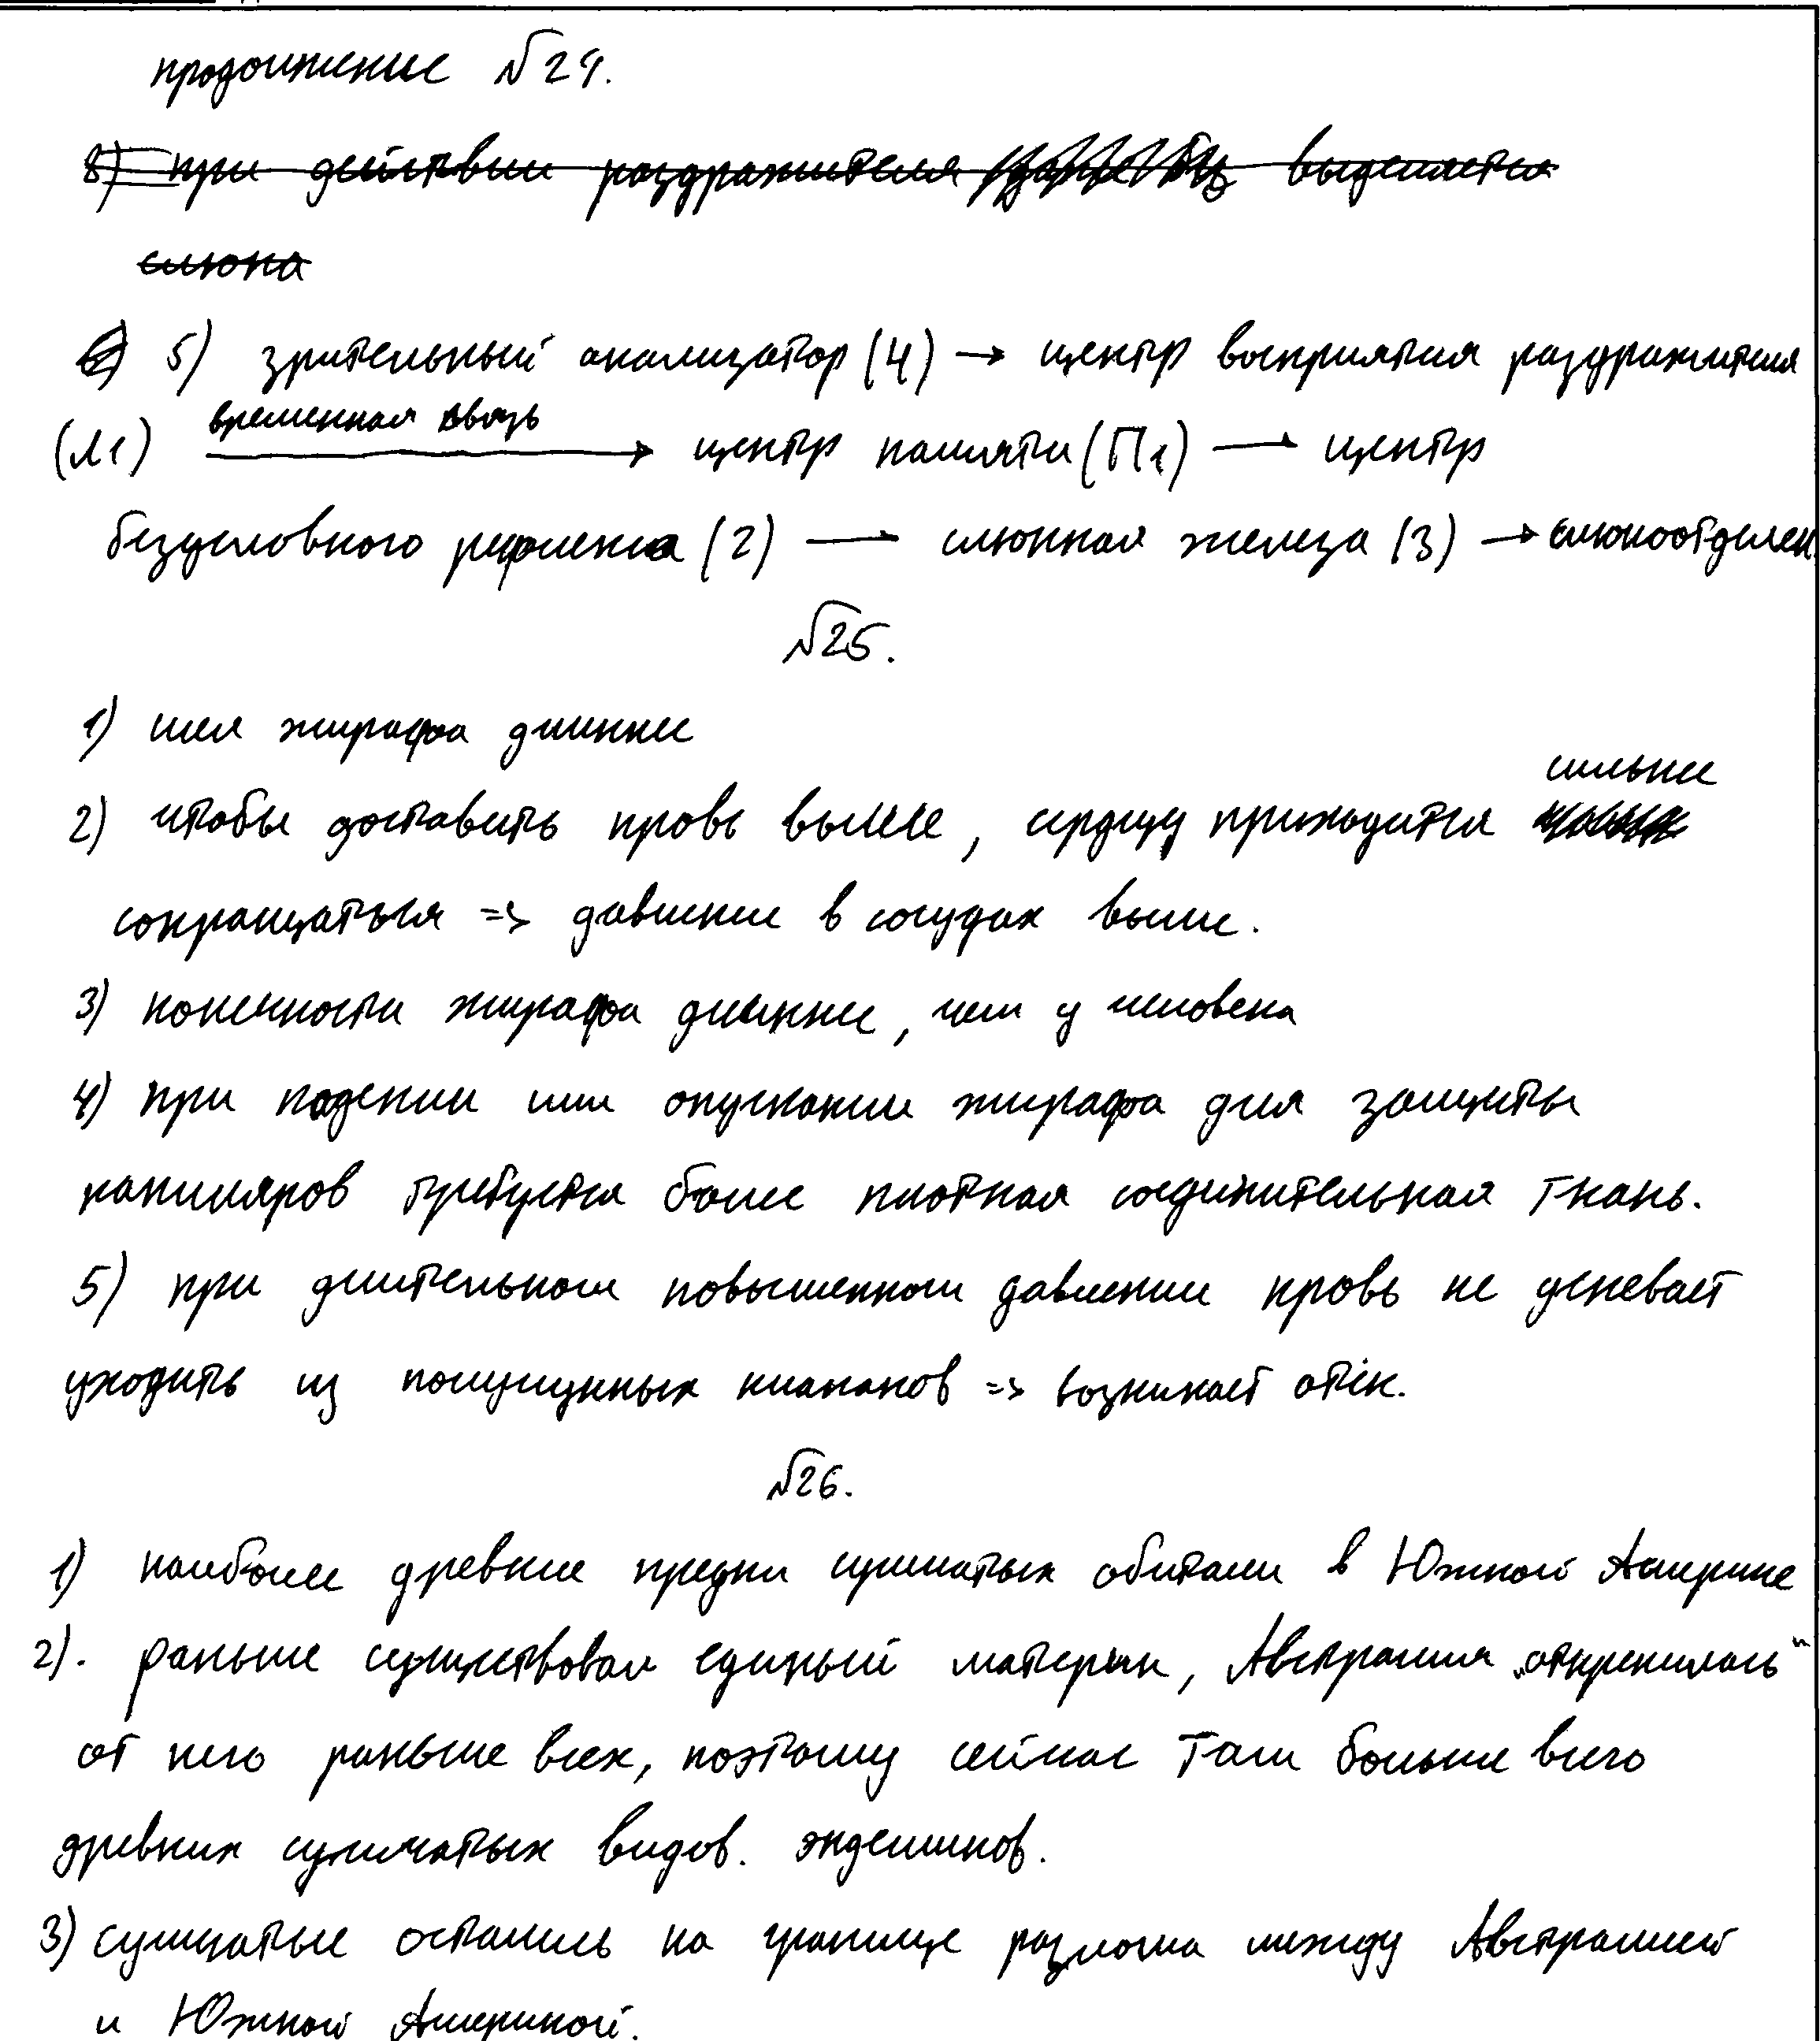 продолжение №24.
8) при действии раздражителя выделяется
слюна
5) зрительный анализатор (4) → центр восприятия раздражителя
(Л1) временная связь → центр памяти (П1) — центр
безусловного рефлекса (2) — слюнная железа (3) → слюноотделен.
№25.
1) шея жирафа длиннее
сильнее
2) чтобы доставить кровь выше, сердцу приходится
сокращаться => давление в сосудах выше.
3) конечности жирафа длиннее, чем у человека
4) при падении или опускании жирафа для защиты
капиляров требуется более плотная соединительная ткань.
5) при длительном повышенном давлении кровь не успевает
уходить из полулунных клапанов => возникает отёк.
№26.
1) наиболее древние предки сумчатых обитали в Южной Америке
2). раньше существовал единый материк, Австралия „откренилась“
от него раньше всех, поэтому сейчас там больше всего
древних сумчатых видов. эндемиков.
3) сумчатые остались на границе разлома между Австралией
и Южной Америкой.